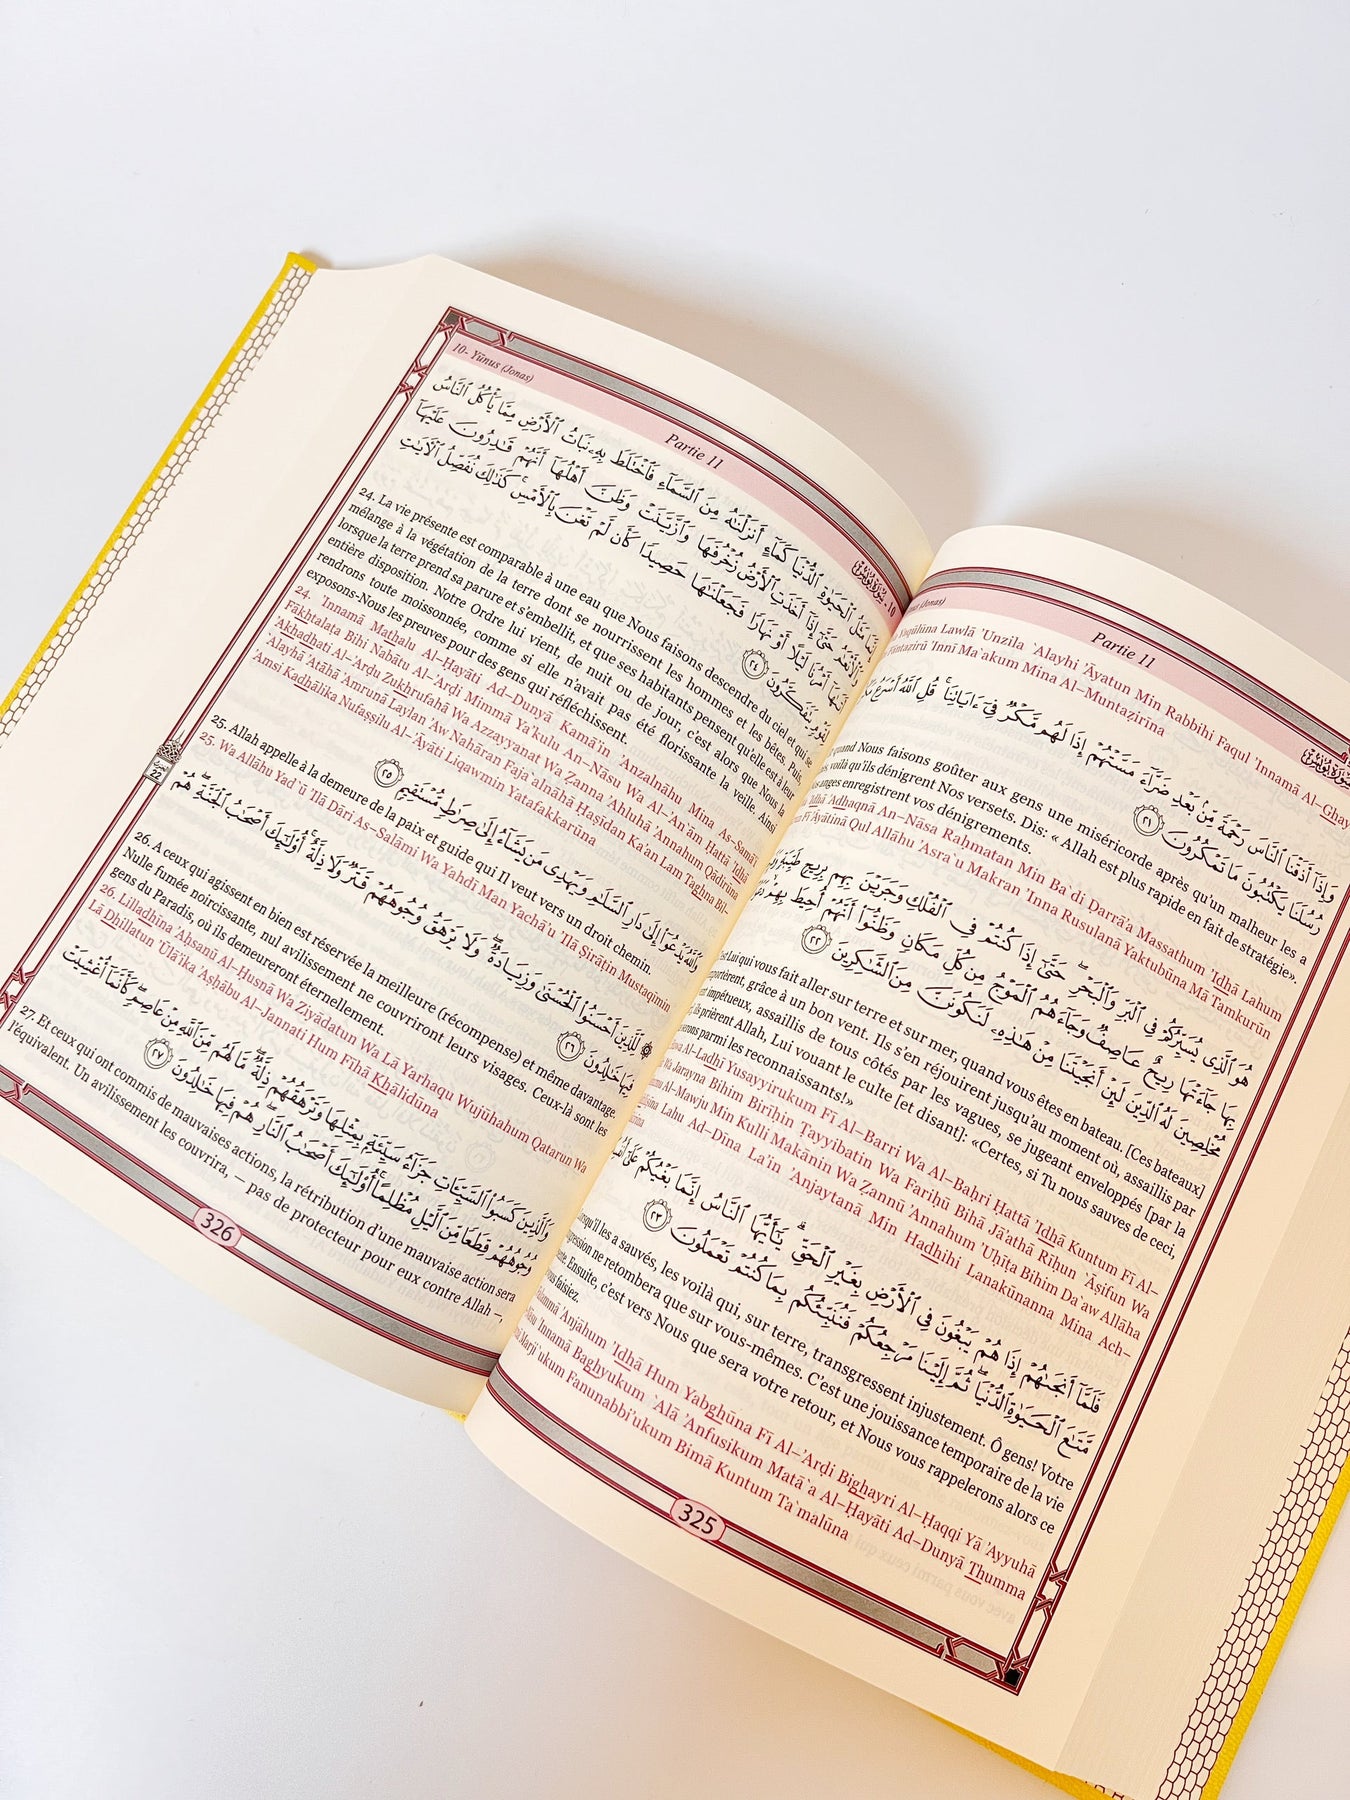 (Jonas)
Partie 11
Yaqūlūna Lawlā 'Unzila `Alayhi 'Āyatun Min Rabbihi Faqul 'Innamā Al–Ghay
Fāntaẓirū 'Innī Ma`akum Mina Al–Muntaẓirīna
وَإِذَآ أَذَقۡنَا ٱلنَّاسَ رَحۡمَةٗ مِّنۢ بَعۡدِ ضَرَّآءَ مَسَّتۡهُمۡ إِذَا لَهُم مَّكۡرٞ فِيٓ ءَايَاتِنَاۚ قُلِ ٱللَّهُ أَسۡرَعُ
رُسُلَنَا يَكۡتُبُونَ مَا تَمۡكُرُونَ ٢١
quand Nous faisons goûter aux gens une miséricorde après qu'un malheur les a
voilà qu'ils dénigrent Nos versets. Dis: « Allah est plus rapide en fait de stratégie».
anges enregistrent vos dénigrements.
'Idhā Adhaqnā An–Nāsa Raḥmatan Min Ba`di Ḍarrā'a Massathum 'Idhā Lahum
Fī 'Āyātinā Qul Allāhu 'Asra`u Makran 'Inna Rusulanā Yaktubūna Mā Tamkurūn
هُوَ ٱلَّذِي يُسَيِّرُكُمۡ فِي ٱلۡبَرِّ وَٱلۡبَحۡرِۖ حَتَّىٰٓ إِذَا كُنتُمۡ فِي ٱلۡفُلۡكِ وَجَرَيۡنَ بِهِم بِرِيحٖ طَيِّبَةٖ
بِهَا جَآءَتۡهَا رِيحٌ عَاصِفٞ وَجَآءَهُمُ ٱلۡمَوۡجُ مِن كُلِّ مَكَانٖ وَظَنُّوٓاْ أَنَّهُمۡ أُحِيطَ بِهِمۡ
مُخۡلِصِينَ لَهُ ٱلدِّينَ لَئِنۡ أَنجَيۡتَنَا مِنۡ هَٰذِهِۦ لَنَكُونَنَّ مِنَ ٱلشَّٰكِرِينَ ٢٢
Lui qui vous fait aller sur terre et sur mer, quand vous êtes en bateau. [Ces bateaux]
grâce à un bon vent. Ils s'en réjouirent jusqu'au moment où, assaillis par
impétueux, assaillis de tous côtés par les vagues, se jugeant enveloppés [par la
ils prièrent Allah, Lui vouant le culte [et disant]: «Certes, si Tu nous sauves de ceci,
parmi les reconnaissants!»
Al–Ladhī Yusayyirukum Fī Al–Barri Wa Al–Baḥri Ḥattā 'Idhā Kuntum Fī Al–
Wa Jarayna Bihim Birīḥin Ṭayyibatin Wa Fariḥū Bihā Jā'athā Rīḥun `Āṣifun Wa
Al–Mawju Min Kulli Makānin Wa Ẓannū 'Annahum 'Uḥīṭa Bihim Da`aw Allāha
Lahu Ad–Dīna La'in 'Anjaytanā Min Hadhihi Lanakūnanna Mina Ach–
فَلَمَّآ أَنجَىٰهُمۡ إِذَا هُمۡ يَبۡغُونَ فِي ٱلۡأَرۡضِ بِغَيۡرِ ٱلۡحَقِّۗ يَٰٓأَيُّهَا ٱلنَّاسُ إِنَّمَا بَغۡيُكُمۡ عَلَىٰٓ
مَّتَٰعَ ٱلۡحَيَوٰةِ ٱلدُّنۡيَاۖ ثُمَّ إِلَيۡنَا مَرۡجِعُكُمۡ فَنُنَبِّئُكُم بِمَا كُنتُمۡ تَعۡمَلُونَ ٢٣
il les a sauvés, les voilà qui, sur terre, transgressent injustement. Ô gens! Votre
ne retombera que sur vous-mêmes. C'est une jouissance temporaire de la vie
Ensuite, c'est vers Nous que sera votre retour, et Nous vous rappelerons alors ce
faisiez.
'Anjāhum 'Idhā Hum Yabghūna Fī Al–'Arḍi Bighayri Al–Ḥaqqi Yā 'Ayyuhā
'Innamā Baghyukum `Alá 'Anfusikum Matā`a Al–Ḥayāti Ad–Dunyā Thumma
Marji`ukum Fanunabbi'ukum Bimā Kuntum Ta`malūna
325
10- Yūnus (Jonas)
Partie 11
10
إِنَّمَا مَثَلُ ٱلۡحَيَوٰةِ ٱلدُّنۡيَا كَمَآءٍ أَنزَلۡنَٰهُ مِنَ ٱلسَّمَآءِ فَٱخۡتَلَطَ بِهِۦ نَبَاتُ ٱلۡأَرۡضِ مِمَّا يَأۡكُلُ ٱلنَّاسُ
وَٱلۡأَنۡعَٰمُ حَتَّىٰٓ إِذَآ أَخَذَتِ ٱلۡأَرۡضُ زُخۡرُفَهَا وَٱزَّيَّنَتۡ وَظَنَّ أَهۡلُهَآ أَنَّهُمۡ قَٰدِرُونَ عَلَيۡهَآ
أَتَىٰهَآ أَمۡرُنَا لَيۡلًا أَوۡ نَهَارٗا فَجَعَلۡنَٰهَا حَصِيدٗا كَأَن لَّمۡ تَغۡنَ بِٱلۡأَمۡسِۚ كَذَٰلِكَ نُفَصِّلُ ٱلۡأٓيَٰتِ
لِقَوۡمٖ يَتَفَكَّرُونَ ٢٤
24. La vie présente est comparable à une eau que Nous faisons descendre du ciel et qui se
mélange à la végétation de la terre dont se nourrissent les hommes et les bêtes. Puis,
lorsque la terre prend sa parure et s'embellit, et que ses habitants pensent qu'elle est à leur
entière disposition. Notre Ordre lui vient, de nuit ou de jour, c'est alors que Nous la
rendrons toute moissonnée, comme si elle n'avait pas été florissante la veille. Ainsi
exposons-Nous les preuves pour des gens qui réfléchissent.
24. 'Innamā Mathalu Al–Ḥayāti Ad–Dunyā Kamā'in 'Anzalnāhu Mina As–Samā'i
Fākhtalaṭa Bihi Nabātu Al–'Arḍi Mimmā Ya'kulu An–Nāsu Wa Al–An`ām Ḥattá 'Idhā
'Akhadhati Al–'Arḍu Zukhrufahā Wa Azzayyanat Wa Ẓanna 'Ahluhā 'Annahum Qādirūna
`Alayhā 'Atāhā 'Amrunā Laylan 'Aw Nahāran Faja`alnāhā Ḥaṣīdan Ka'an Lam Taghna Bil–
'Amsi Kadhālika Nufaṣṣilu Al–'Āyāti Liqawmin Yatafakkarūna
وَٱللَّهُ يَدۡعُوٓاْ إِلَىٰ دَارِ ٱلسَّلَٰمِ وَيَهۡدِي مَن يَشَآءُ إِلَىٰ صِرَٰطٖ مُّسۡتَقِيمٖ ٢٥
25. Allah appelle à la demeure de la paix et guide qui Il veut vers un droit chemin.
25. Wa Allāhu Yad`ū 'Ilá Dāri As–Salāmi Wa Yahdī Man Yachā'u 'Ilá Ṣirāṭin Mustaqīmin
22
لِّلَّذِينَ أَحۡسَنُواْ ٱلۡحُسۡنَىٰ وَزِيَادَةٞۖ وَلَا يَرۡهَقُ وُجُوهَهُمۡ قَتَرٞ وَلَا ذِلَّةٌۚ أُوْلَٰٓئِكَ أَصۡحَٰبُ ٱلۡجَنَّةِۖ هُمۡ
فِيهَا خَٰلِدُونَ ٢٦
26. A ceux qui agissent en bien est réservée la meilleure (récompense) et même davantage.
Nulle fumée noircissante, nul avilissement ne couvriront leurs visages. Ceux-là sont les
gens du Paradis, où ils demeureront éternellement.
26. Lilladhīna 'Aḥsanū Al–Ḥusná Wa Ziyādatun Wa Lā Yarhaqu Wujūhahum Qatarun Wa
Lā Dhillatun 'Ūlā'ika 'Aṣḥābu Al–Jannati Hum Fīhā Khālidūna
وَٱلَّذِينَ كَسَبُواْ ٱلسَّيِّـَٔاتِ جَزَآءُ سَيِّئَةِۭ بِمِثۡلِهَا وَتَرۡهَقُهُمۡ ذِلَّةٞۖ مَّا لَهُم مِّنَ ٱللَّهِ مِنۡ عَاصِمٖۖ كَأَنَّمَآ أُغۡشِيَتۡ
وُجُوهُهُمۡ قِطَعٗا مِّنَ ٱلَّيۡلِ مُظۡلِمًاۚ أُوْلَٰٓئِكَ أَصۡحَٰبُ ٱلنَّارِۖ هُمۡ فِيهَا خَٰلِدُونَ ٢٧
27. Et ceux qui ont commis de mauvaises actions, la rétribution d'une mauvaise action sera
l'équivalent. Un avilissement les couvrira, — pas de protecteur pour eux contre Allah —,
326